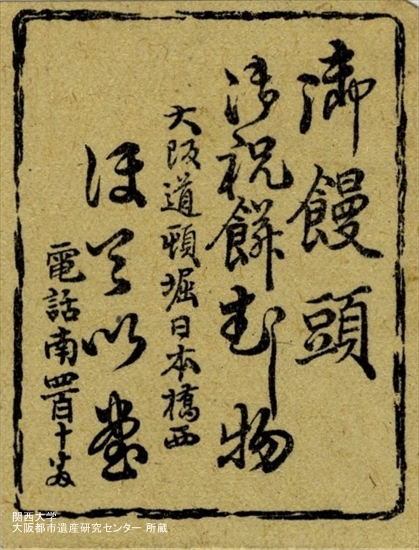 御饅頭
御祝餅むし物
大阪道頓堀日本橋西
ほて以堂
電話南四百十
関西大学
大阪都市遺産研究センター 所蔵